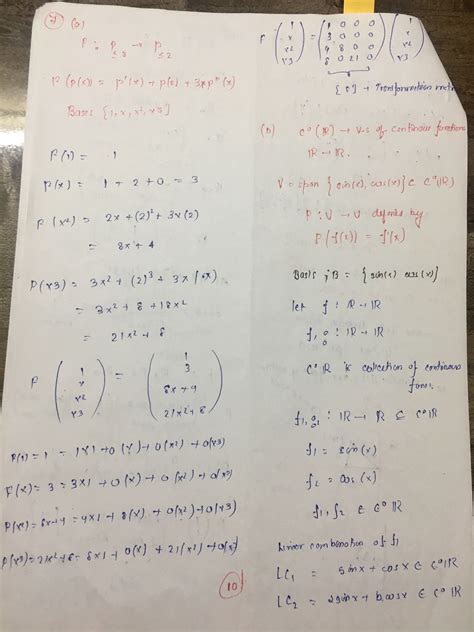 (a)
P : P≤3 → P≤2
P(p(x)) = p'(x) + p(2) + 3xp''(x)
Basis {1, x, x², x3}
P(1) = 1
P(x) = 1 + 2 + 0 = 3
P(x²) = 2x + (2)² + 3x(2)
= 8x + 4
P(x3) = 3x² + (2)³ + 3x(6x)
= 3x² + 8 + 18x²
= 21x² + 8
P ( 1 ) = ( 1 )
x 3
x² 8x + 4
x3 21x² + 8
P(1) = 1 = 1x1 + 0(x) + 0(x²) + 0(x3)
P(x) = 3 = 3x1 + 0(x) + 0(x²) + 0(x³)
P(x²) = 8x+4 = 4x1 + 8(x) + 0(x²) + 0(x3)
P(x³) = 21x²+8 = 8x1 + 0(x) + 21(x²) + 0(x)
10
P ( 1 ) = ( 1 0 0 0 ) ( 1 )
x 3 0 0 0 x
x² 4 8 0 0 x²
x3 8 0 21 0 x3
Transformation
(b) C⁰(R) → V.s of continous functions
IR → IR.
V = span { sin(x), cos(x) } ⊂ C⁰(IR)
P : V → V defined by
P(f(x)) = f'(x)
Basis, B = { sin(x) cos(x) }
let f : IR → IR
f, g : IR → IR
C⁰ IR is collection of continous
f1, g : IR → IR ⊆ C⁰ IR
f1 = sin(x)
f2 = cos(x)
f1, f2 ∈ C⁰ IR
Linear combination of f1
LC₁ = sinx + cosx ∈ C⁰ IR
LC₂ = 2sinx + b cosx ∈ C⁰ IR